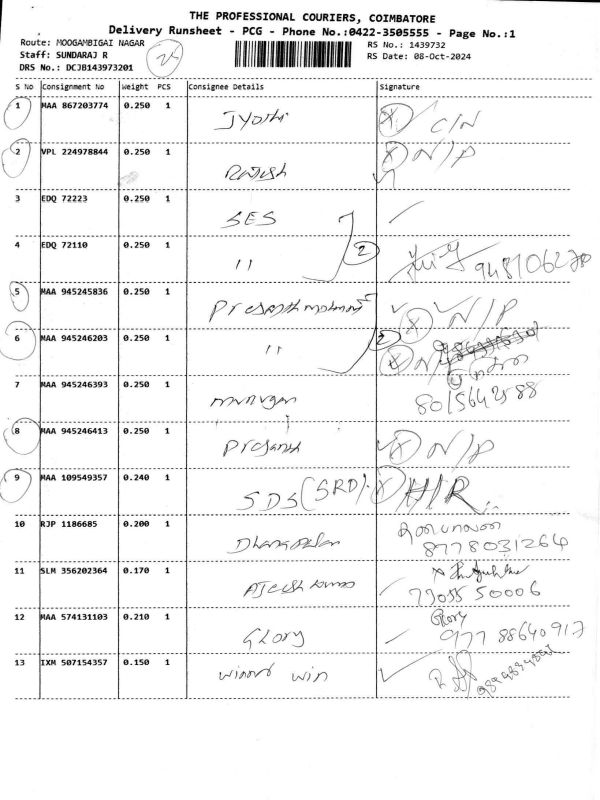 THE PROFESSIONAL COURIERS, COIMBATORE
Delivery Runsheet - PCG - Phone No.:0422-3505555 - Page No.:1
Route: MOOGAMBIGAI NAGAR RS No.: 1439732
Staff: SUNDARAJ R RS Date: 08-Oct-2024
DRS No.: DCJB143973201
S No Consignment No Weight PCS Consignee Details Signature
1 MAA 867203774 0.250 1 Jyothi X C/N
2 VPL 224978844 0.250 1 Rajesh X N/P
3 EDQ 72223 0.250 1 SES
4 EDQ 72110 0.250 1 11 2
5 MAA 945245836 0.250 1 X N/P
6 MAA 945246203 0.250 1 11 2 X
7 MAA 945246393 0.250 1 murugan 8015642588
8 MAA 945246413 0.250 1 X N/P
9 MAA 109549357 0.240 1 SDS (SRD). X H/R
10 RJP 1186685 0.200 1 8778031264
11 SLM 356202364 0.170 1 50006
12 MAA 574131103 0.210 1 Glory Glory
13 IXM 507154357 0.150 1 win